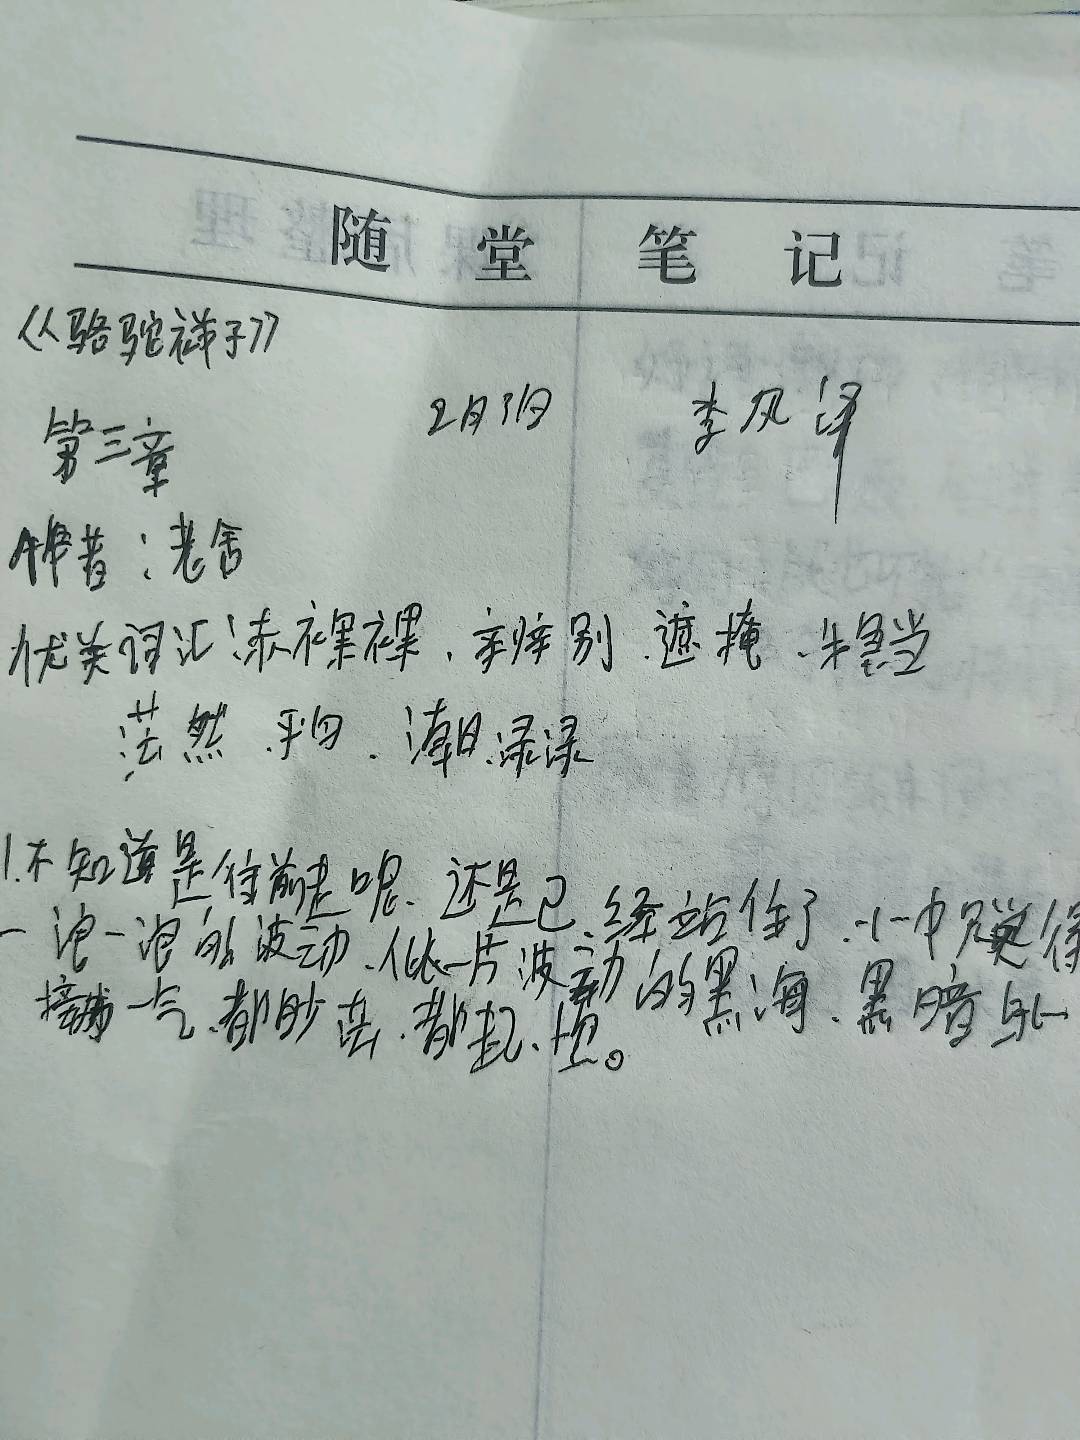 随堂笔记
《骆驼祥子》
第三章 2月1日 李风泽
作者：老舍
优美词汇：赤裸裸、辨别、遮掩、妥当
茫然、平匀、潮渌渌
1.不知道是往前走呢、还是已经站住了、心中只觉得
一浪一浪的波动、似一片波动的黑海、黑暗与
接成一气、都渺茫、都起、